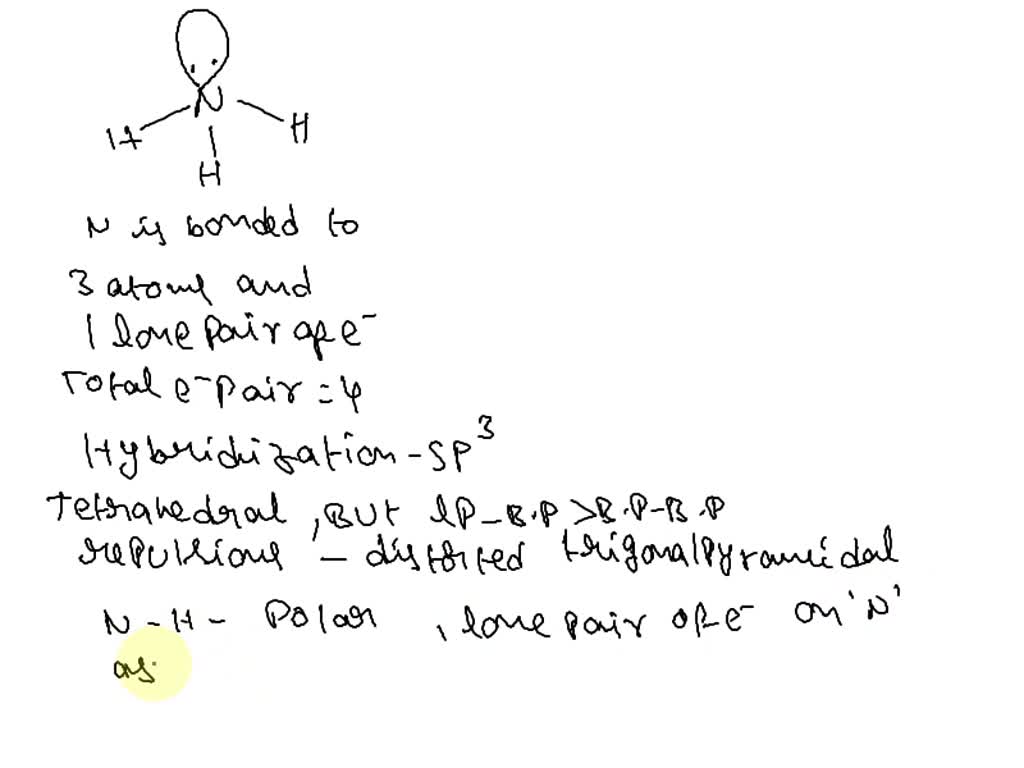 N
H H
H
N is bonded to
3 atoms and
1 lone pair of e⁻
Total e⁻ pair = 4
Hybridization - SP³
Tetrahedral , BUt lP - B.P > B.P - B.P
repulsions - distorted trigonal Pyramidal
N - H - Polar , lone pair of e⁻ on 'N'
as